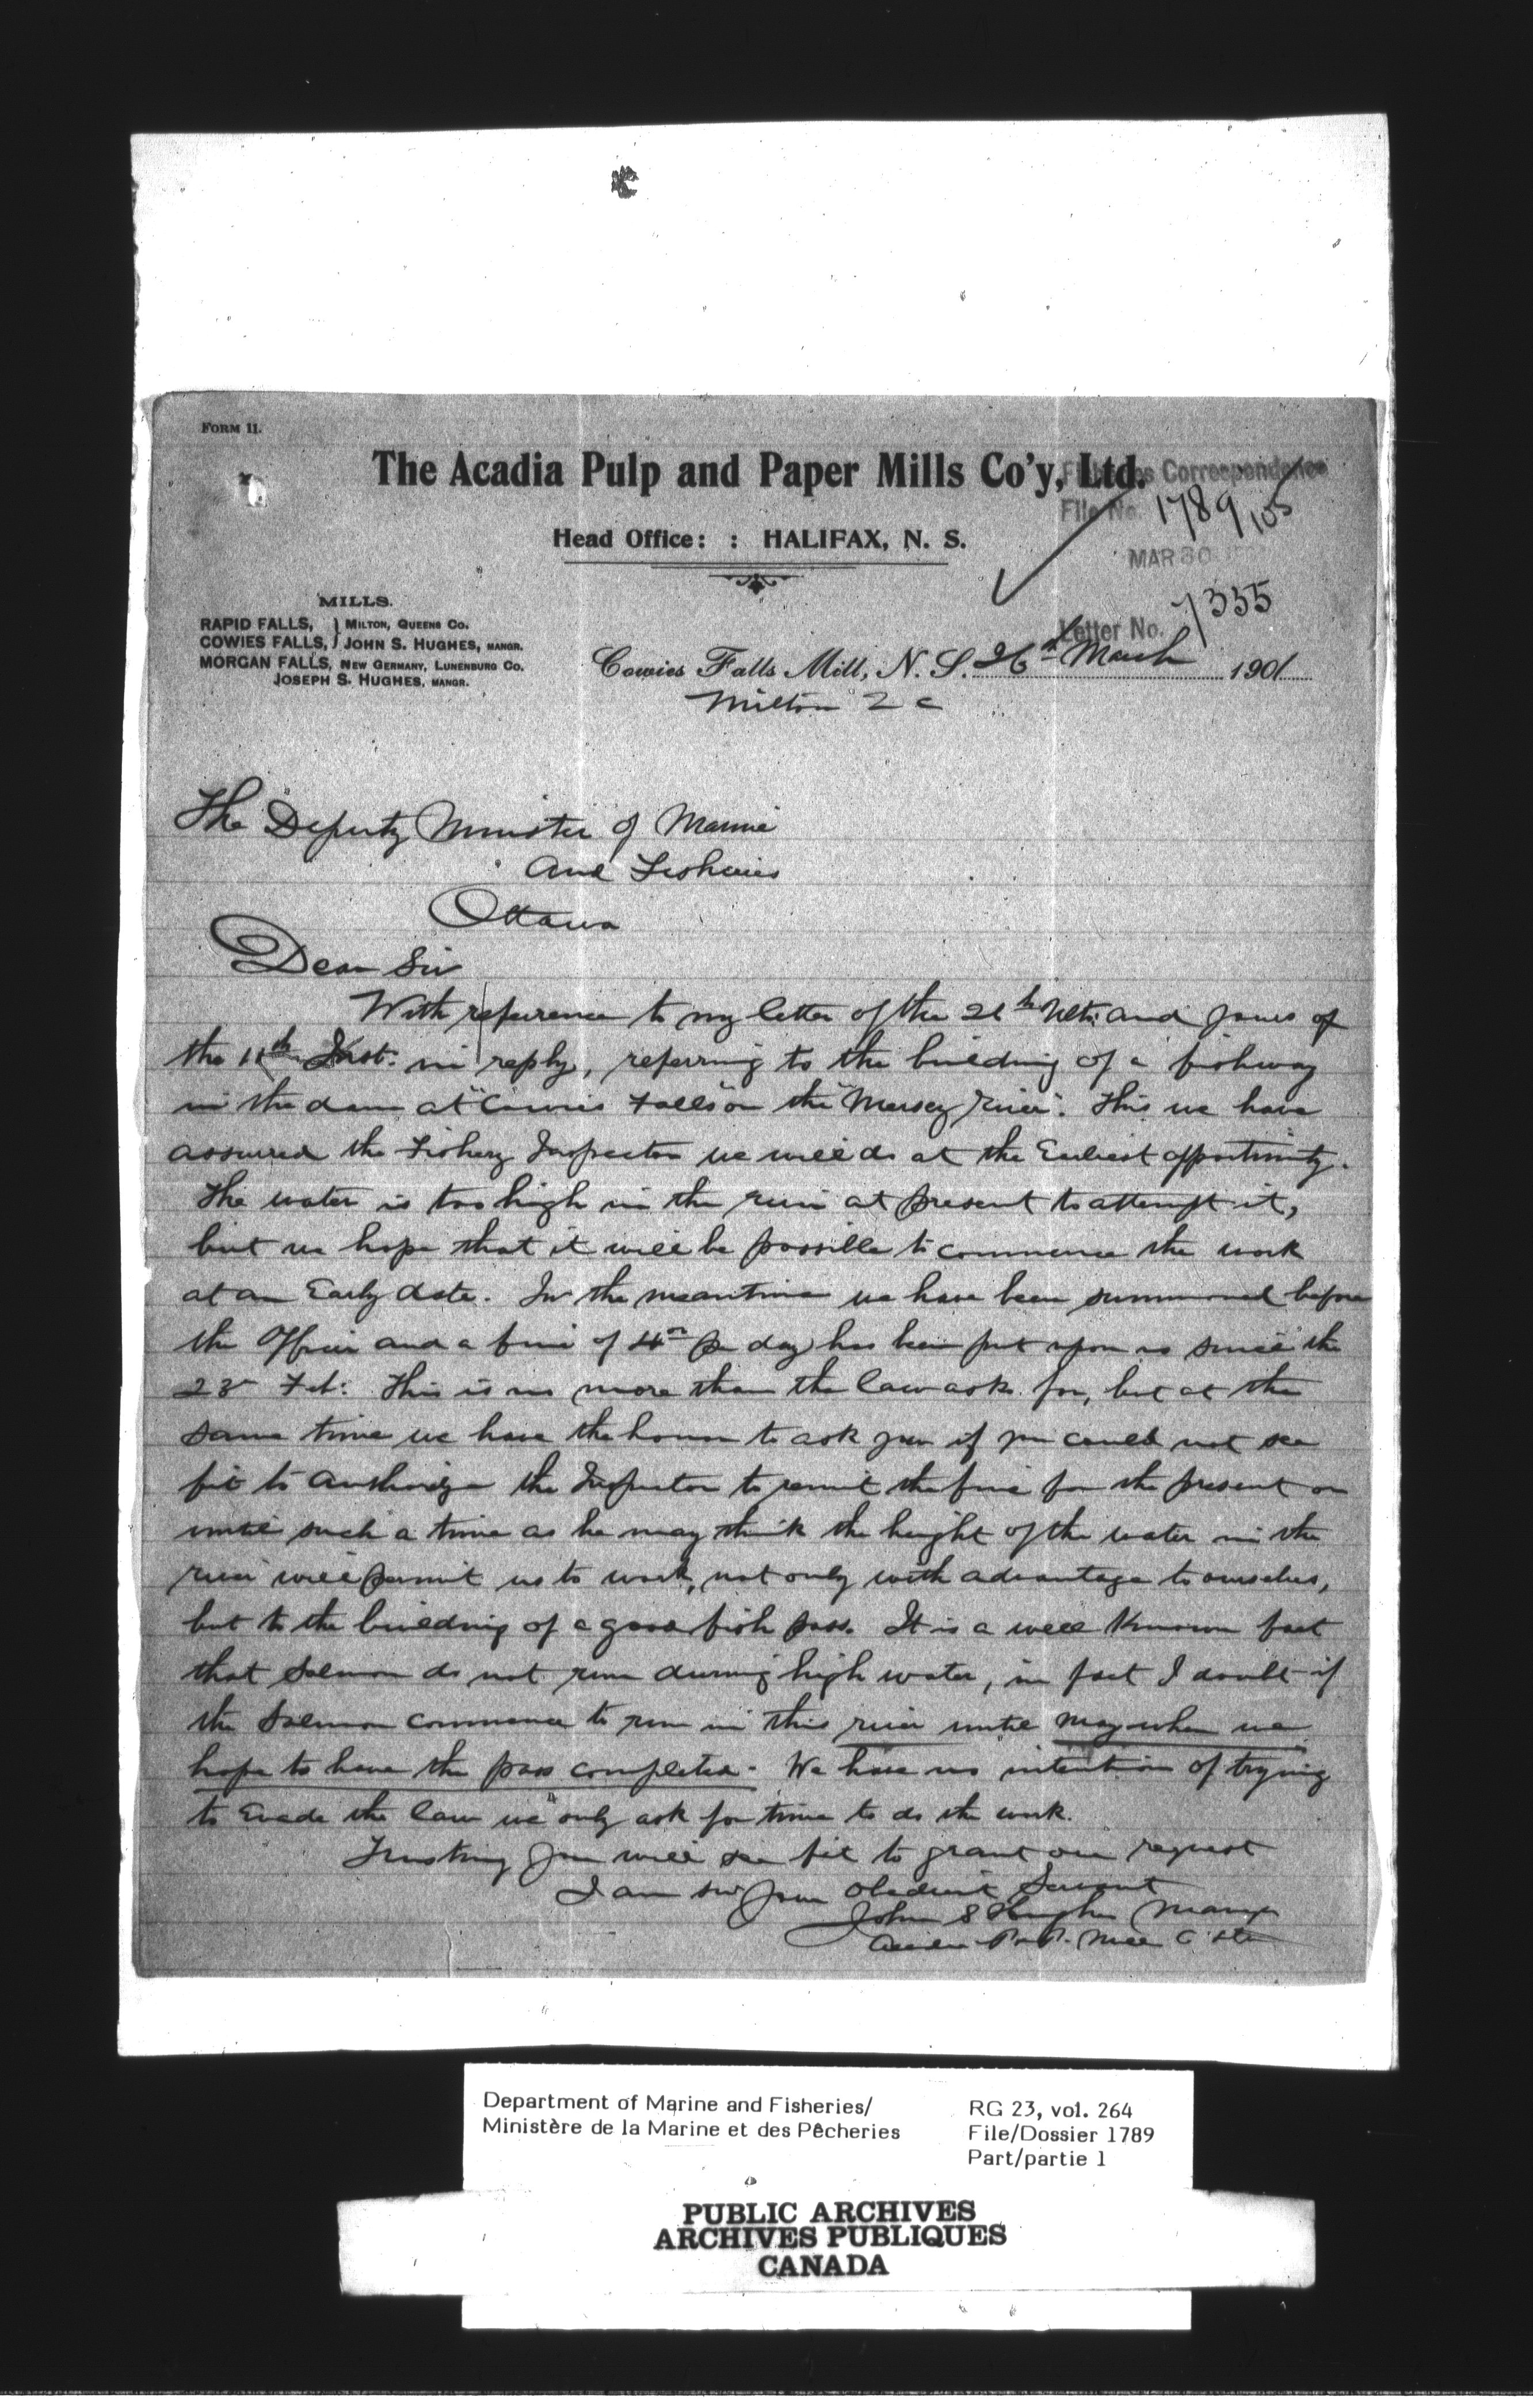 FORM 11.
The Acadia Pulp and Paper Mills Co'y, Ltd.
Fisheries Correspondence
File No. 1789/105
Head Office: : HALIFAX, N. S.
MAR 30
MILLS.
RAPID FALLS, } MILTON, QUEENS CO.
COWIES FALLS, } JOHN S. HUGHES, MANGR.
MORGAN FALLS, NEW GERMANY, LUNENBURG CO.
JOSEPH S. HUGHES, MANGR.
Letter No. 1335
Cowies Falls Mill, N. S. 26th March 1901
Milton Q C
The Deputy Minister of Marine
and Fisheries
Ottawa
Dear Sir
With reference to my letter of the 26th Ulto: and yours of
the 11th Inst: in reply, referring to the building of a fishway
in the dam at "Cowies Falls" on the "Mersey river". This we have
assured the Fishery Inspector we will do at the Earliest opportunity.
The water is too high in the river at present to attempt it,
but we hope that it will be possible to commence the work
at an Early date. In the meantime we have been summoned before
the Officer and a fine of 4 per day has been put upon us since the
23 Feb: This is no more than the law asks for, but at the
same time we have the honor to ask you if you could not see
fit to authorize the Inspector to remit the fine for the present or
until such a time as he may think the height of the water in the
river will permit us to work, not only with advantage to ourselves,
but to the building of a good fish pass. It is a well Known fact
that Salmon do not run during high water, in fact I doubt if
the Salmon commence to run in this river until May when we
hope to have the pass completed. We have no intention of trying
to Evade the law we only ask for time to do the work.
Trusting you will see fit to grant our request
I am sir your Obedient Servant
John S Hughes Mangr
Acadia P & P. Mill C Ltd
Department of Marine and Fisheries/
Ministère de la Marine et des Pêcheries
RG 23, vol. 264
File/Dossier 1789
Part/partie 1
PUBLIC ARCHIVES
ARCHIVES PUBLIQUES
CANADA